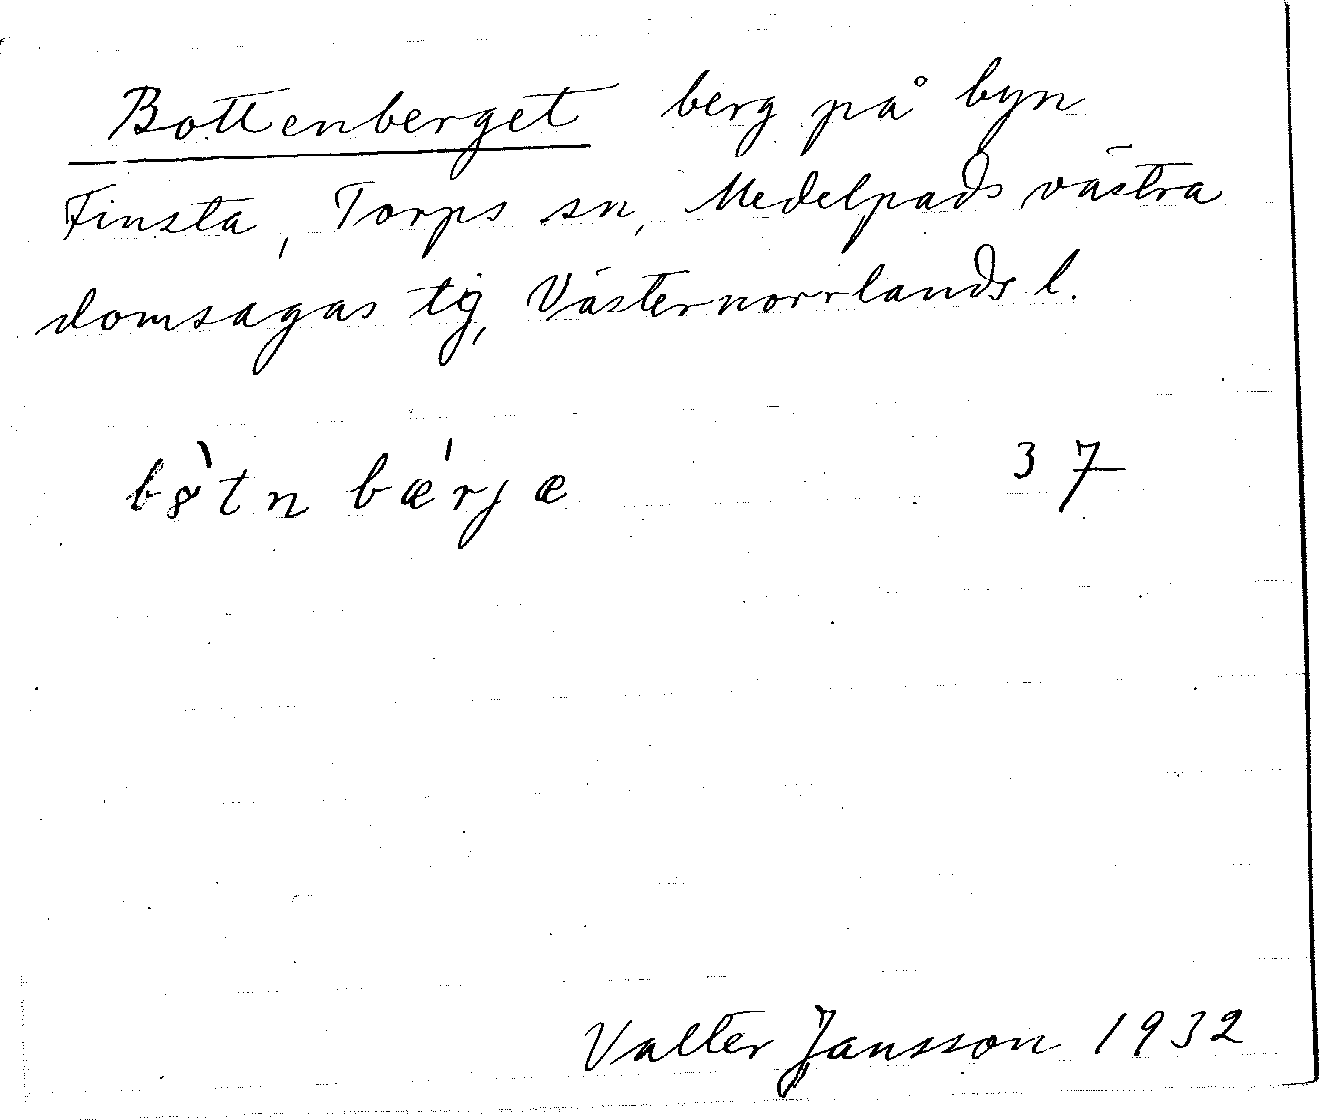 Bottenberget berg på byn
Finsta, Torps sn, Medelpads västra
domsagas tg, Västernorrlands l.
b8̀tn bǽrjæ 37
Valter Jansson 1932